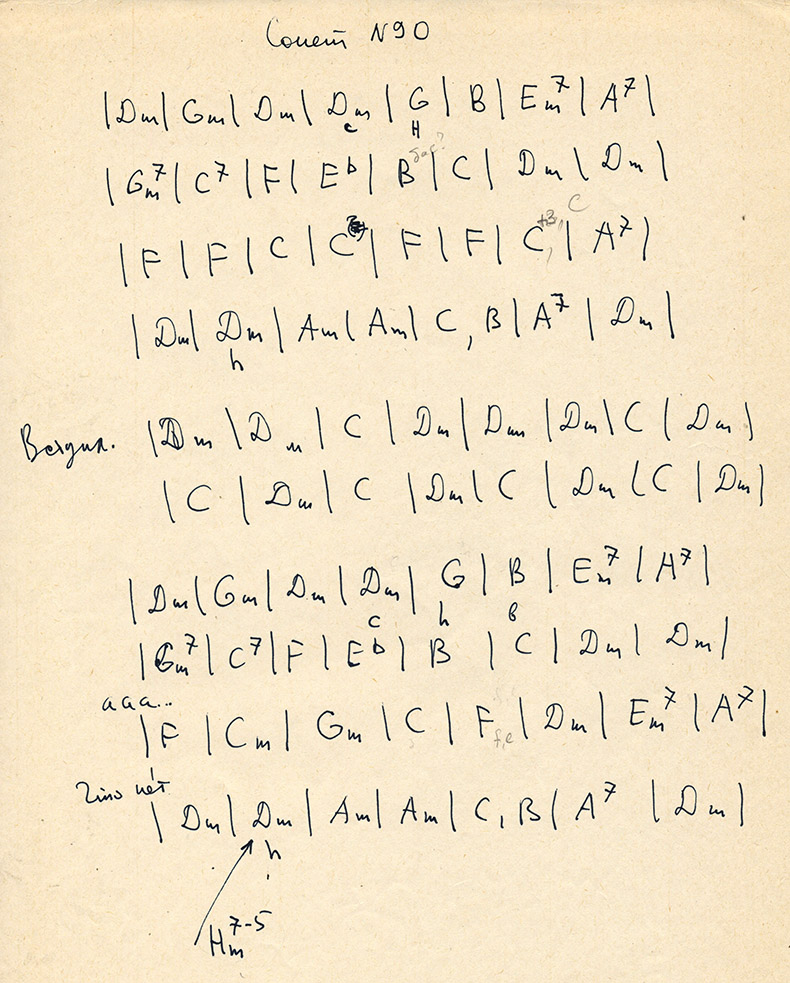 Сонет N90
|Dm| Gm| Dm| Dm | G | B | Em7 | A7 |
c H
бас?
| Gm7 | C7 | F | Eb | B | C | Dm | Dm |
+3, C
| F | F | C | C | F | F | C, | A7 |
| Dm | Dm | Am | Am | C, B | A7 | Dm |
h
| Dm | Dm | C | Dm | Dm | Dm | C | Dm |
| C | Dm | C | Dm | C | Dm | C | Dm |
| Dm | Gm | Dm | Dm | G | B | Em7 | A7 |
c h в
| Gm7 | C7 | F | Eb | B | C | Dm | Dm |
ааа...
| F | Cm | Gm | C | F | Dm | Em7 | A7 |
f, e
нет
| Dm | Dm | Am | Am | C, B | A7 | Dm |
h
Hm7-5